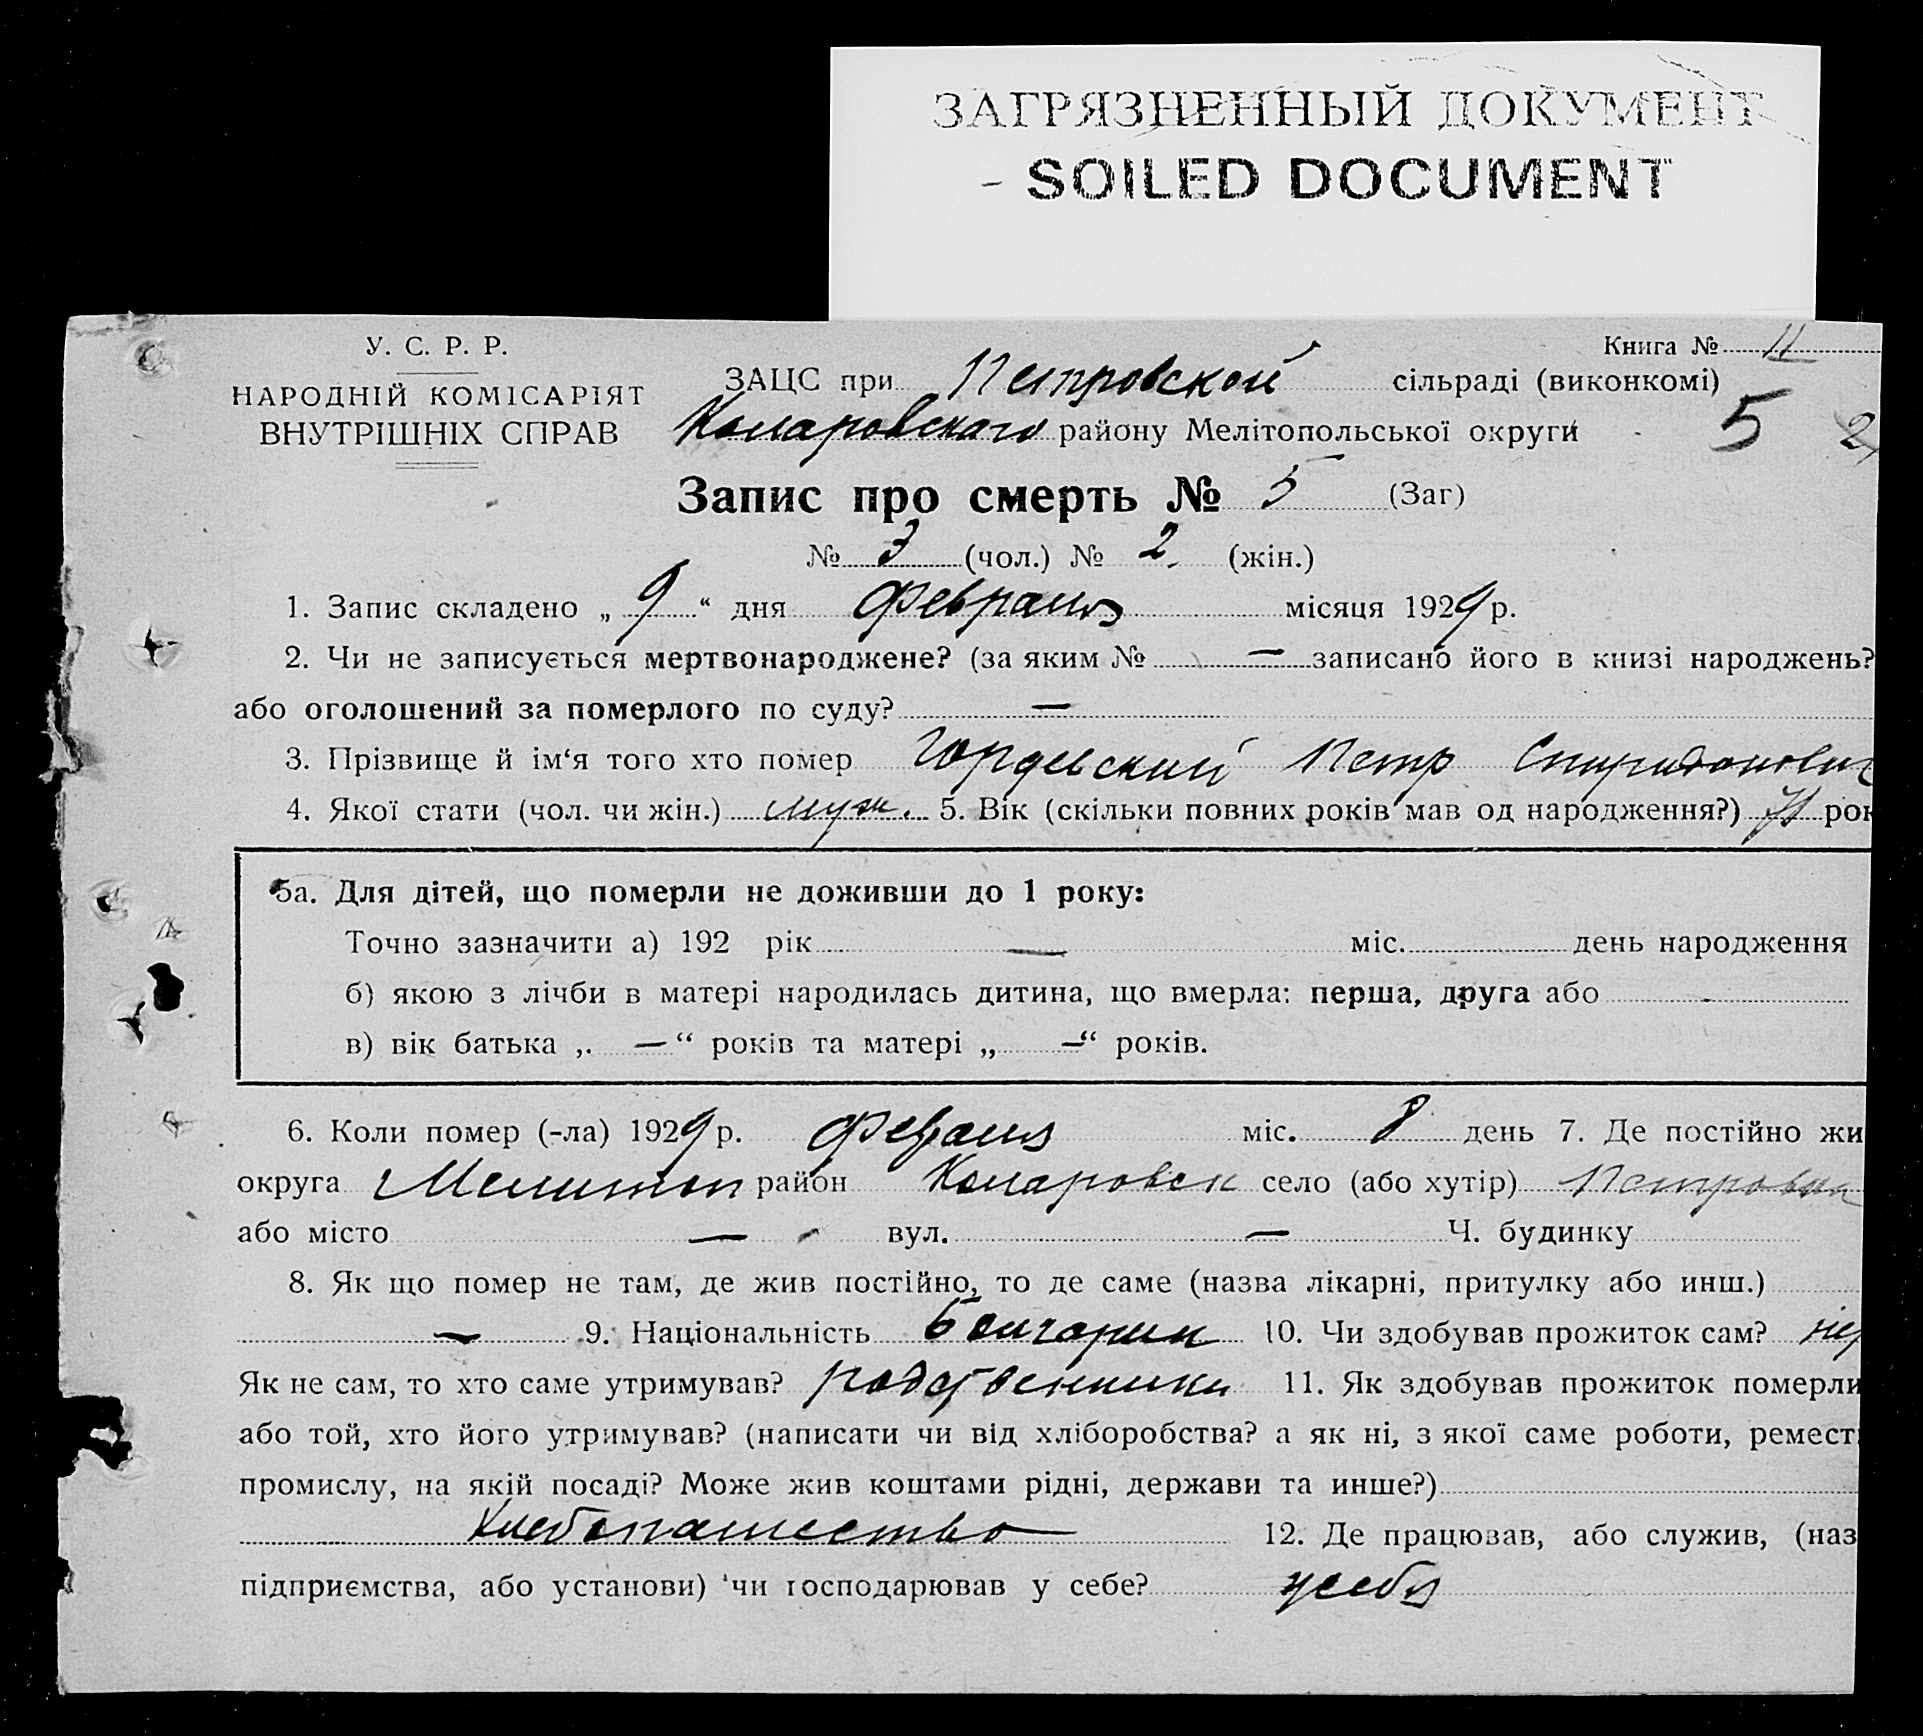 ЗАГРЯЗНЕННЫЙ ДОКУМЕНТ
- SOILED DOCUMENT
У. С. Р. Р.
НАРОДНІЙ КОМІСАРІЯТ
ВНУТРІШНІХ СПРАВ
Книга № 11
ЗАЦС при Петровской сільраді (виконкомі)
Коларовского району Мелітопольської округи 5 2
Запис про смерть № 5 (Заг)
№ 3 (чол.) № 2 (жін.)
1. Запис складено „ 9 “ дня февраля місяця 1929 р.
2. Чи не записується мертвонароджене? (за яким № — записано його в книзі народжень?
або оголошений за померлого по суду? —
3. Прізвище й ім‘я того хто помер Гордевский Петр Спиридонович
4. Якої стати (чол. чи жін.) муж. 5. Вік (скільки повних років мав од народження?) рок
5а. Для дітей, що померли не доживши до 1 року:
Точно зазначити а) 192 рік — міс. день народження
б) якою з лічби в матері народилась дитина, що вмерла: перша, друга або
в) вік батька „ — “ років та матері „ — “ років.
6. Коли помер (-ла) 1929 р. февраля міс. 8 день 7. Де постійно жи
округа Мелитоп район Коларовск село (або хутір) Петровка
або місто — вул. — Ч. будинку
8. Як що помер не там, де жив постійно, то де саме (назва лікарні, притулку або инш.)
— 9. Національність Болгарин 10. Чи здобував прожиток сам?
Як не сам, то хто саме утримував? родственники 11. Як здобував прожиток померли
або той, хто його утримував? (написати чи від хліборобства? а як ні, з якої саме роботи, ремест
промислу, на якій посаді? Може жив коштами рідні, держави та инше?)
Хлебопашество 12. Де працював, або служив, (наз
підприємства, або установи) чи господарював у себе? у себя